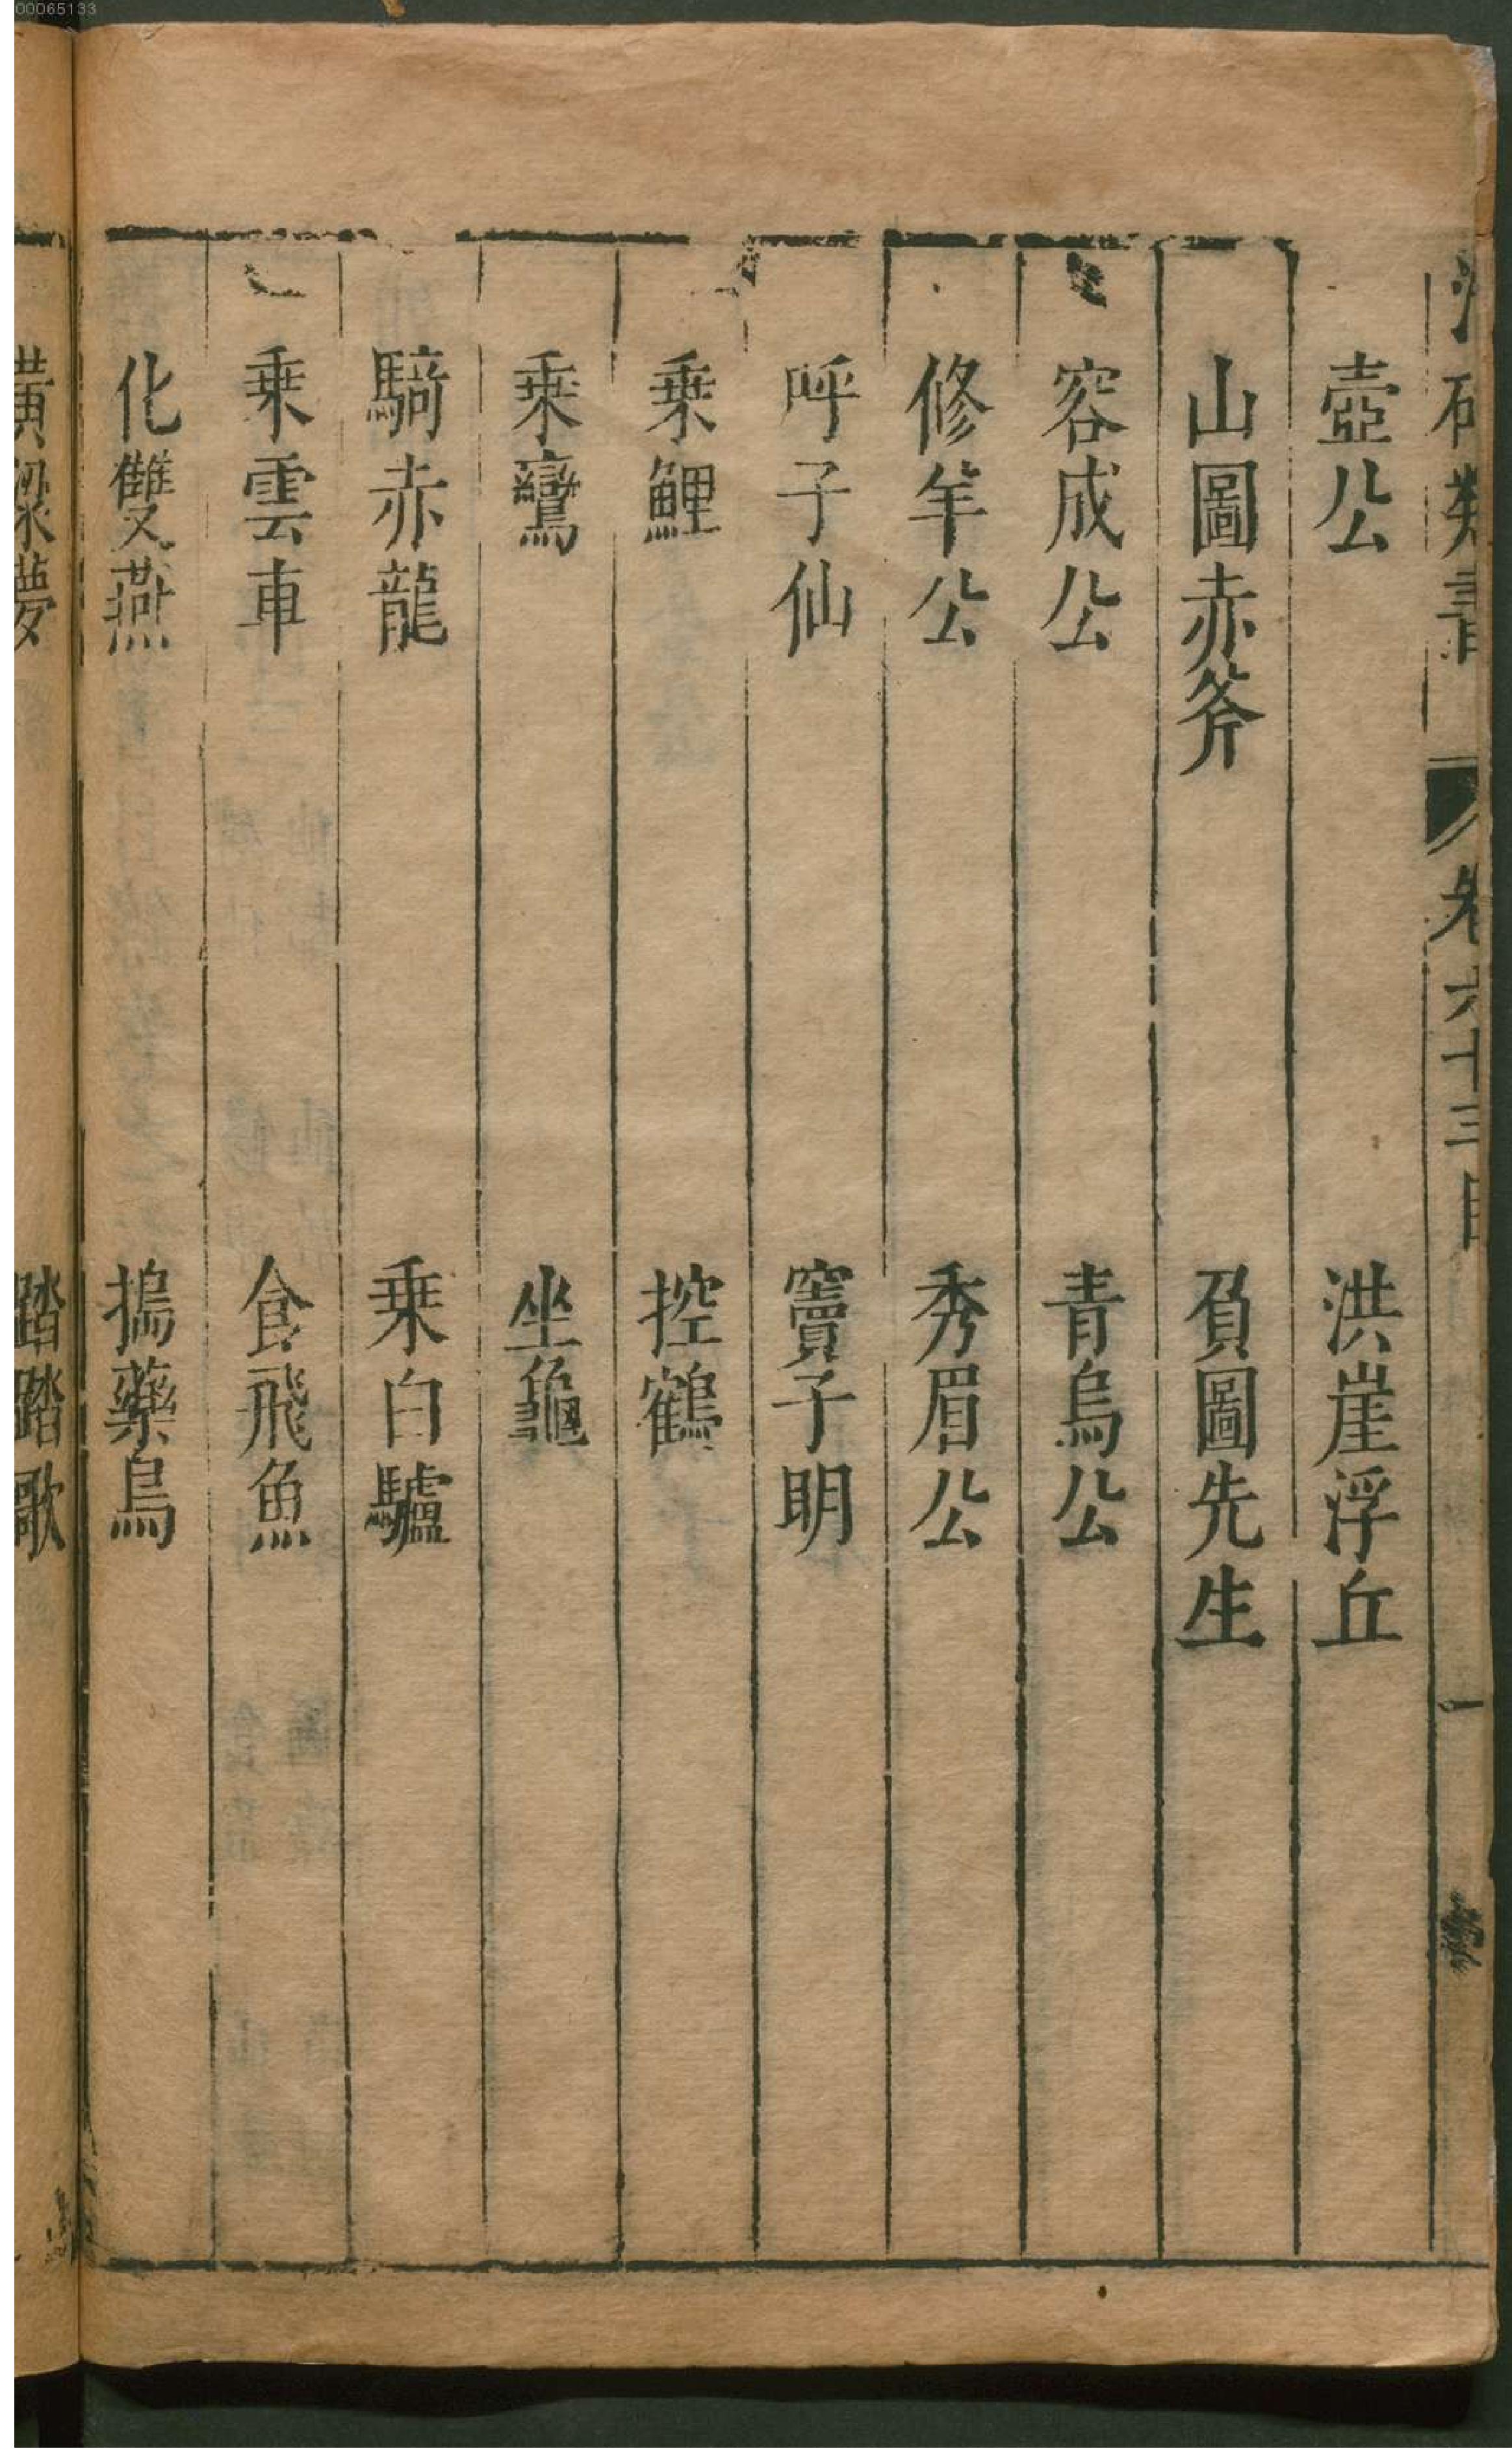 00065133
卷六十三目 一
壺公 洪崖浮丘
山圖赤斧 負圖先生
容成公 青烏公
修羊公 秀眉公
呼子仙 竇子明
乘鯉 控鶴
乘鸞 坐龜
騎赤龍 乘白驢
乘雲車 食飛魚
化雙燕 搗藥鳥
黃梁夢 踏踏歌